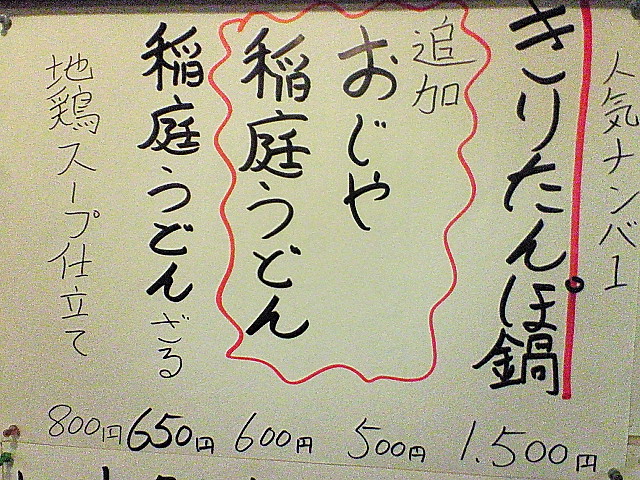 人気ナンバー1
きりたんぽ鍋
1.500円
追加
おじや
500円
稲庭うどん
600円
稲庭うどんざる
650円
地鶏スープ仕立て
800円